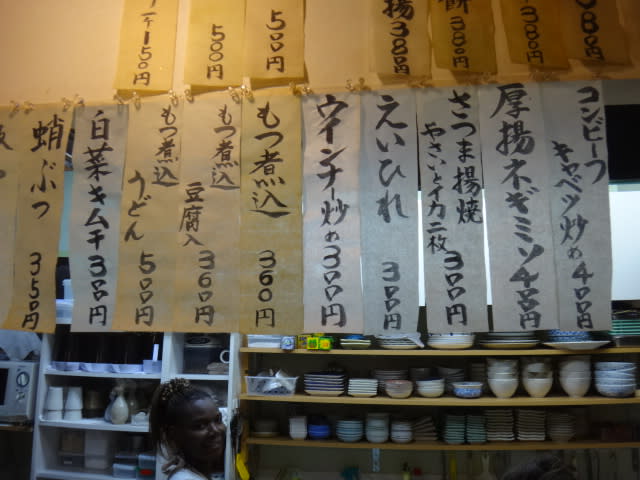 150円
500円
500円
揚 380円
380円
380円
80円
コンビーフ
キャベツ炒め 400円
厚揚ネギミソ 400円
さつま揚焼
やさいとイカ二枚 300円
えいひれ 300円
ウインナー炒め 300円
もつ煮込 360円
もつ煮込
豆腐入 360円
もつ煮込
うどん 500円
白菜キムチ 300円
蛸ぶつ 350円